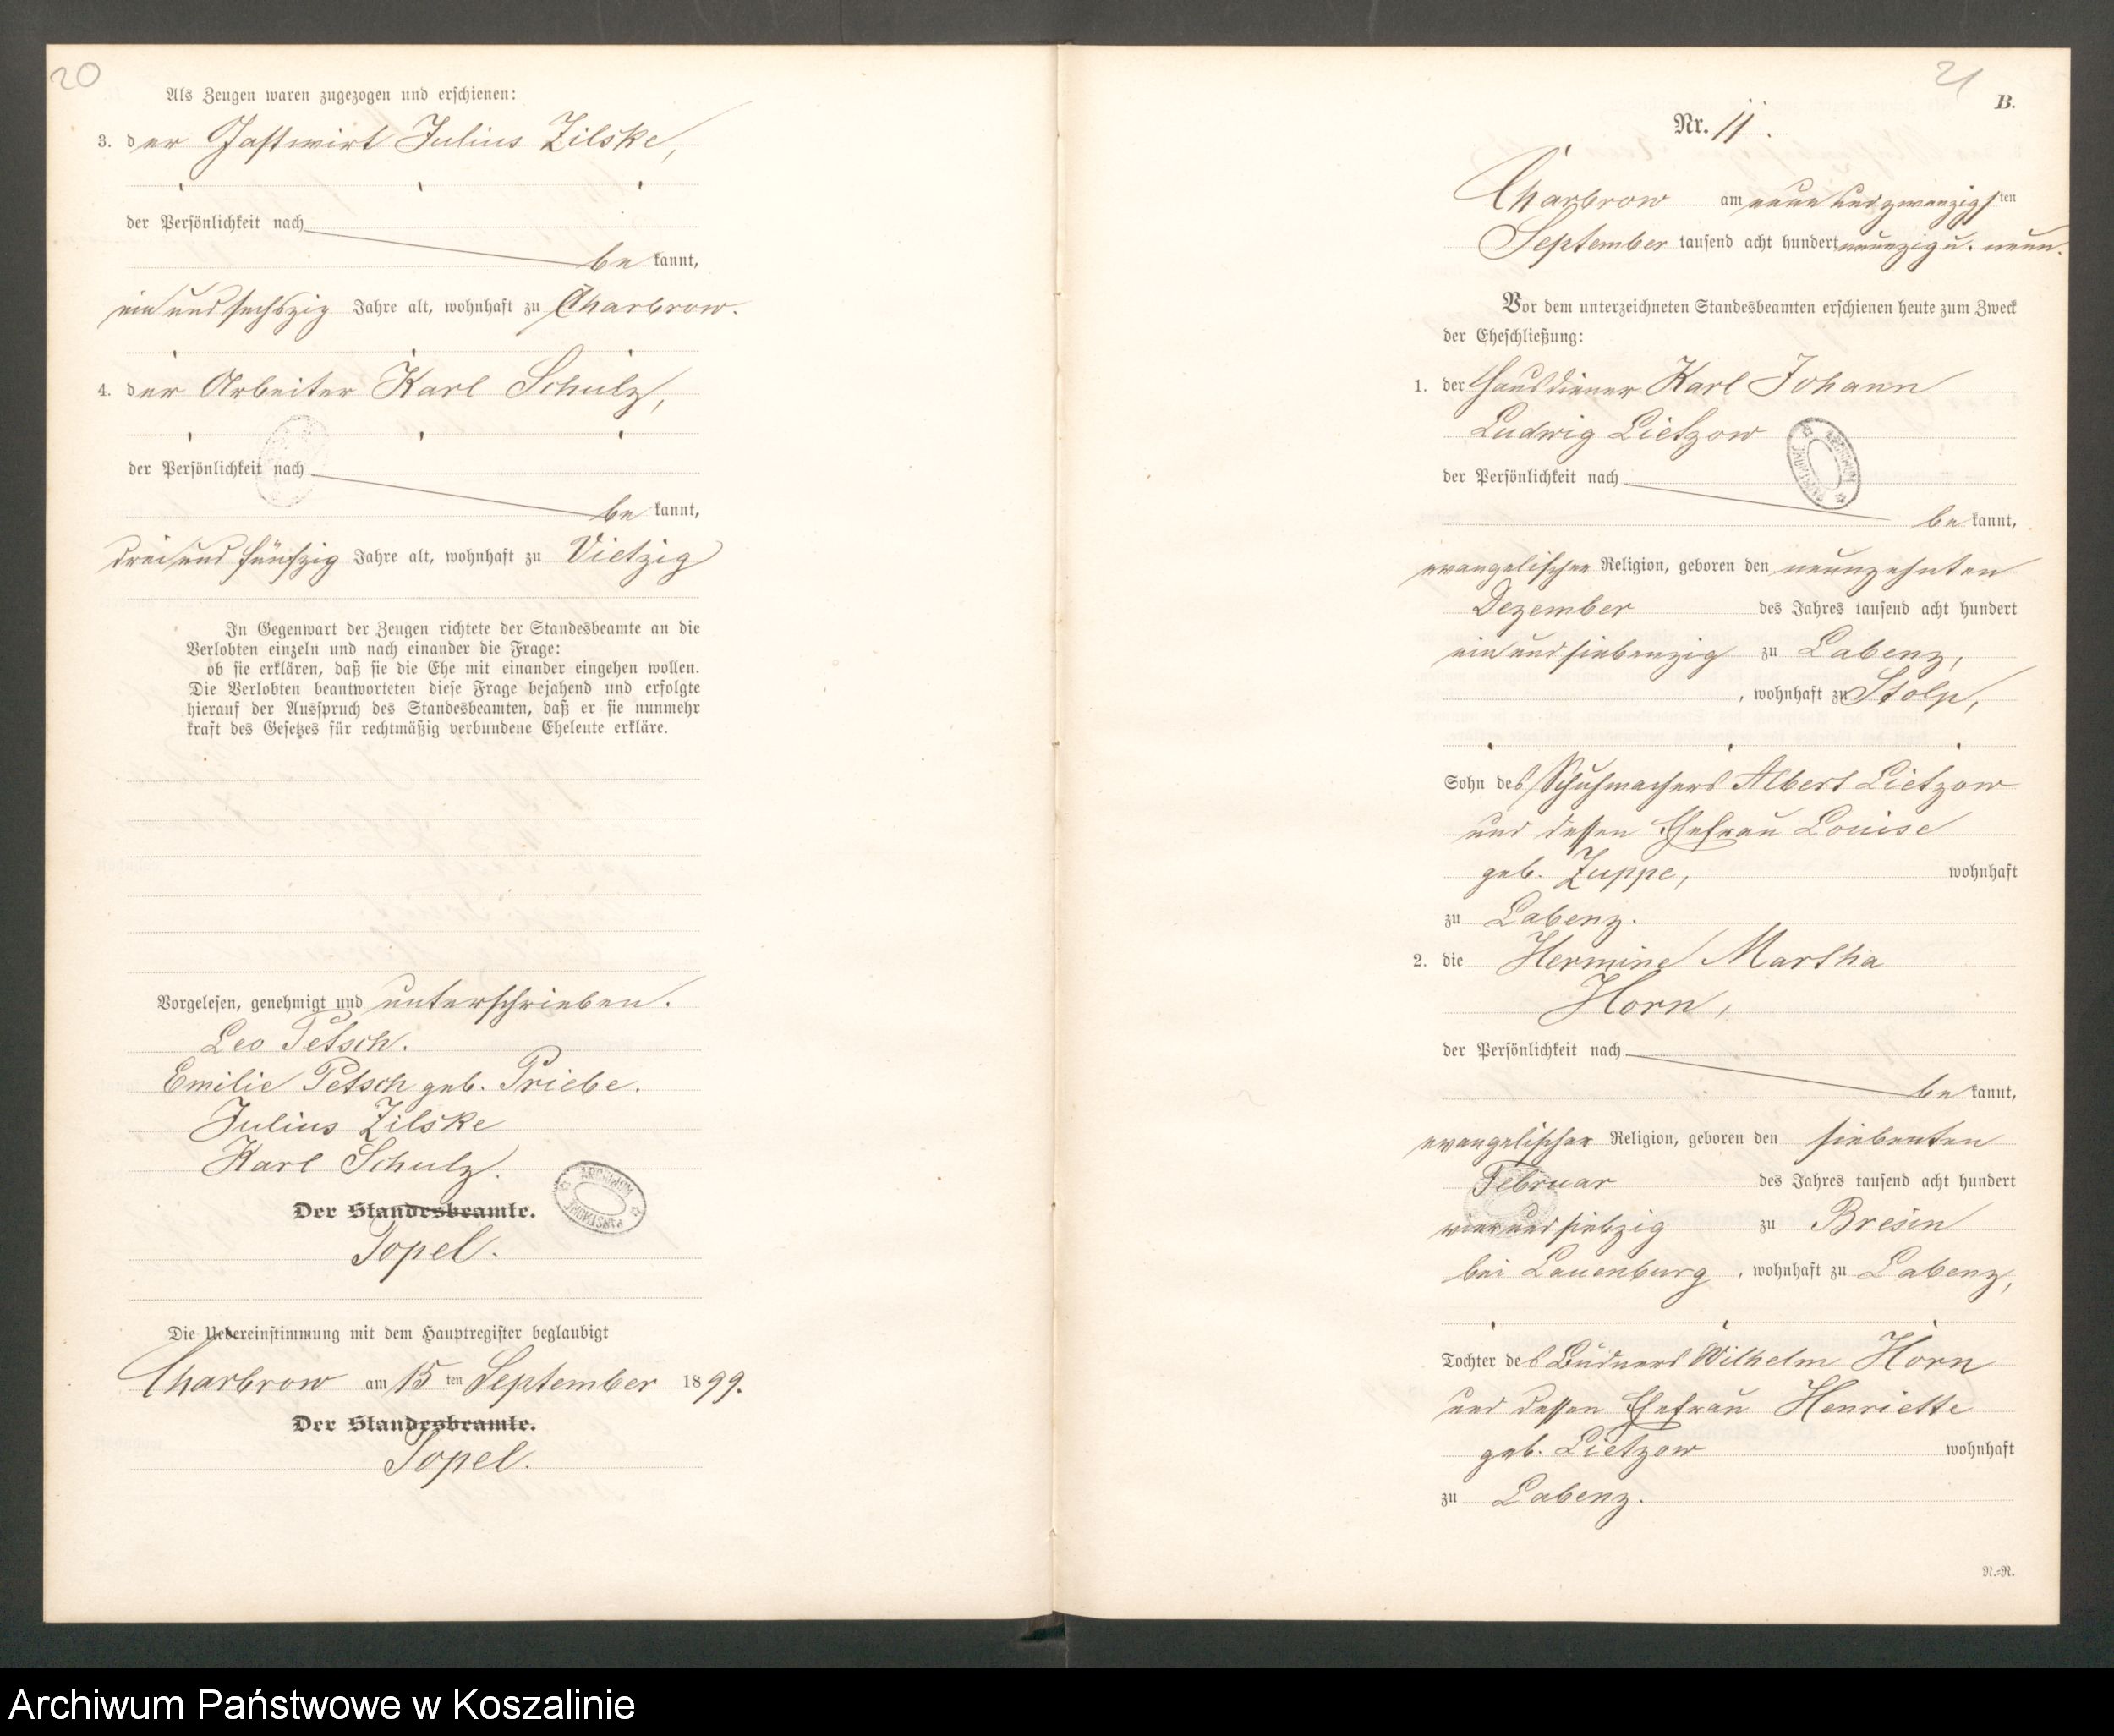 20
Als Zeugen waren zugezogen und erschienen:
3. der Gastwirt Julius Zilske,
der Persönlichkeit nach
bekannt,
ein und sechszig Jahre alt, wohnhaft zu Charbrow.
4. der Arbeiter Karl Schulz,
der Persönlichkeit nach
bekannt,
drei und fünfzig Jahre alt, wohnhaft zu Vietzig
In Gegenwart der Zeugen richtete der Standesbeamte an die
Verlobten einzeln und nach einander die Frage:
ob sie erklären, daß sie die Ehe mit einander eingehen wollen.
Die Verlobten beantworteten diese Frage bejahend und erfolgte
hierauf der Ausspruch des Standesbeamten, daß er sie nunmehr
kraft des Gesetzes für rechtmäßig verbundene Eheleute erkläre.
Vorgelesen, genehmigt und unterschrieben.
Leo Petsch.
Emilie Petsch geb. Priebe.
Julius Zilske
Karl Schulz.
ARCHIWUM PAŃSTWOWE
Der Standesbeamte.
Topel.
Die Uebereinstimmung mit dem Hauptregister beglaubigt
Charbrow am 15 ten September 1899.
Der Standesbeamte.
Topel.
21
B.
Nr. 11.
Charbrow am neun und zwanzigsten
September tausend acht hundert neunzig u. neun.
Vor dem unterzeichneten Standesbeamten erschienen heute zum Zweck
der Eheschließung:
1. der Hausdiener Karl Johann
Ludwig Lietzow
ARCHIWUM PAŃSTWOWE
der Persönlichkeit nach
bekannt,
evangelischer Religion, geboren den neunzehnten
Dezember des Jahres tausend acht hundert
ein und siebenzig zu Labenz,
, wohnhaft zu Stolp,
Sohn des Schuhmachers Albert Lietzow
und dessen Ehefrau Louise
geb. Zuppe, wohnhaft
zu Labenz.
2. die Hermine Martha
Horn,
der Persönlichkeit nach
bekannt,
evangelischer Religion, geboren den siebenten
Februar des Jahres tausend acht hundert
vier und siebzig zu Bresin
bei Lauenburg, wohnhaft zu Labenz,
Tochter des Büdners Wilhelm Horn
und dessen Ehefrau Henriette
geb. Lietzow wohnhaft
zu Labenz.
N.=N.
Archiwum Państwowe w Koszalinie